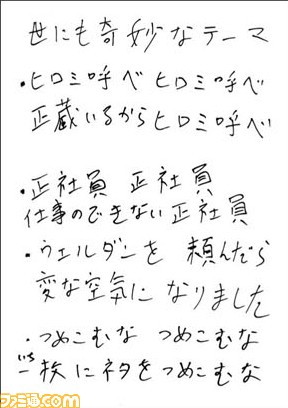 世にも奇妙なテーマ
・ヒロミ呼べ ヒロミ呼べ
正蔵いるからヒロミ呼べ
・正社員 正社員
仕事のできない正社員
・ウェルダンを 頼んだら
変な空気に なりました
・つめこむな つめこむな
いち
一枚にネタをつめこむな
ファミ通.com